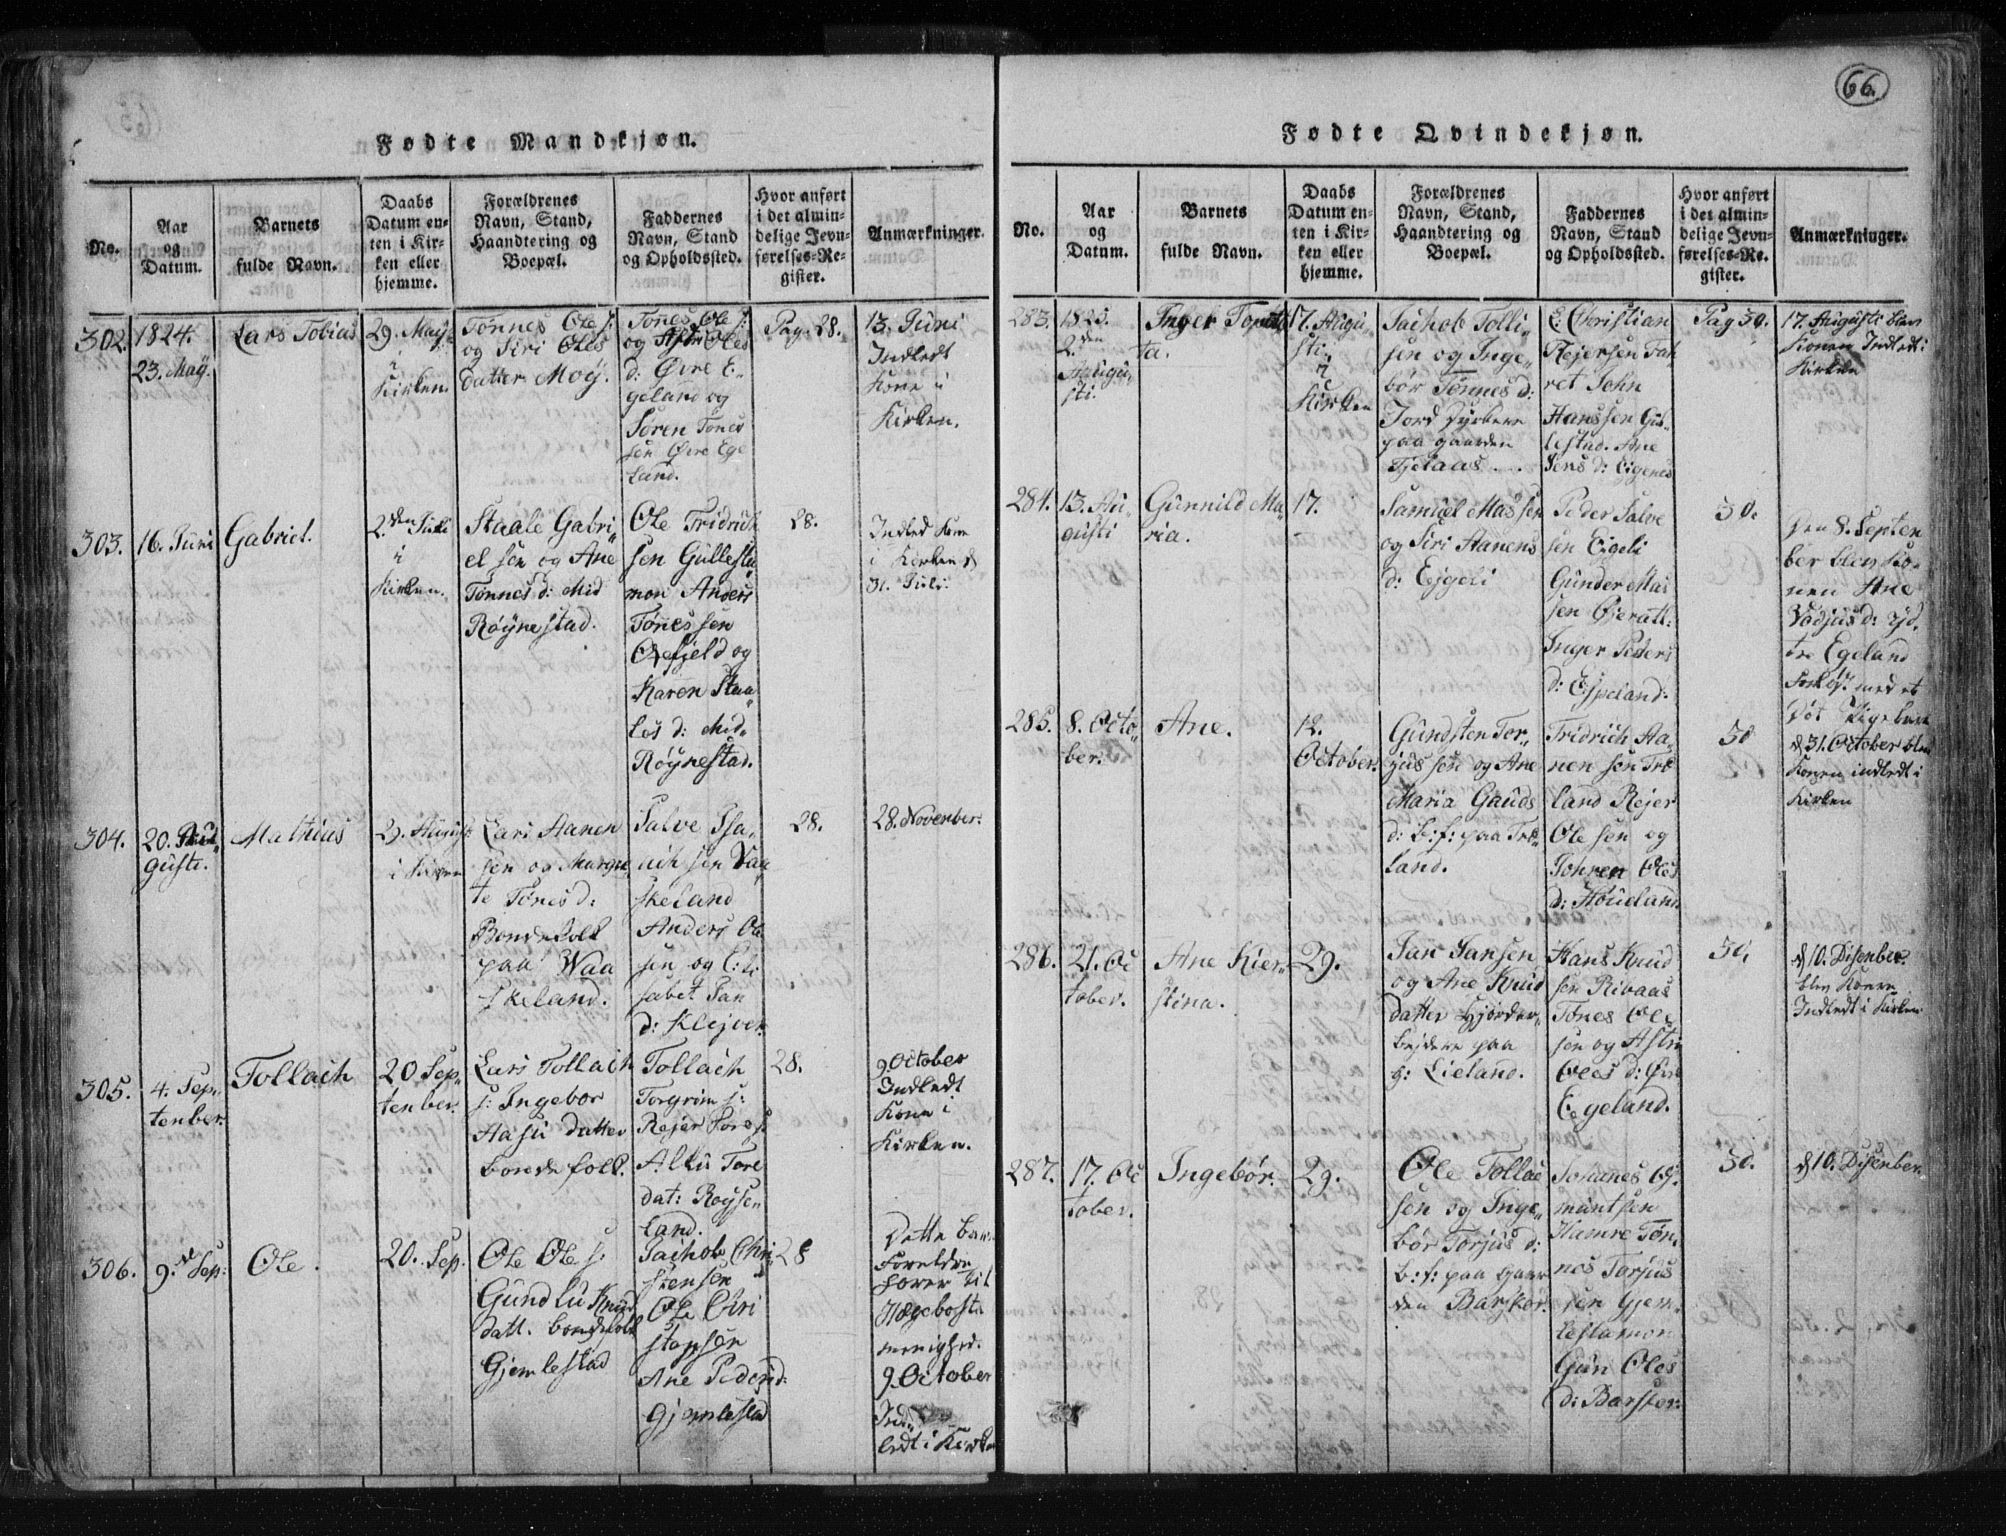 66.
Fødte Mandkjøn.
No.
Aar
og
Datum.
Barnets
fulde Navn.
Daabs
Datum en-
ten i Kir-
ken eller
hjemme.
Forældrenes
Navn, Stand,
Haandtering og
Boepæl.
Faddernes
Navn, Stand
og Opholdssted.
Hvor anført
i det almin-
delige Jevn-
førelses-Re-
gister.
Anmærkninger.
302.
1824.
23. Maÿ.
Lars Tobias
29. Maÿ
i
Kirken.
Tønnes Ole s:
og Siri Oles
datter Moÿ.
Tønes Ole s:
og Oles
d: Øvre E-
geland og
Søren Tønes
sen Øvre Ege
land.
Pag. 28.
13. Juni
Indledt
Kone i
Kirken.
303.
16. Juni
Gabriel.
2.den Juli
i
Kirken.
Staale Gabri
el sen og Ane
Tønnes d: Mid
Røÿnestad.
Ole Fridrich
sen Gullesta
mon Anders
Tønessen
Øxefjeld og
Karen Staa
les d: Mid-
Røÿnestad.
28.
Indled Kone
i Kirken d
31. Juli.
304.
20. Au-
gusti.
Mathias
29. August
i Kirken
Lars Aanen
sen og Margre
te Tønes d:
Bondefolk
paa Waa
skeland.
Salve Isa-
ach sen Vaa
skeland
Anders Ole
sen og Eli
sabet Jan
d: Klejver.
28.
28. November.
305.
4. Sep-
tenber.
Tollach
20 Sep-
tenber.
Lars Tollach
s: Ingebor
Aasu datter
bondefolk.
Tollach
Torgrim s:
Rejer Tore s:
Alku Tore
dat: Roÿse-
land.
28.
9 October
Indledt
Kone i
Kirken.
306.
9.d Sep:
Ole.
20. Sep.
Ole Ole s:
Gundlu Knud
datt. bondefolk
Gjemlestad
Jachob Chri
stensen
Ole Chri
stopsen
Ane Peders d:
Gjemlestad
28
Dette barns
Foreldre
hører til
Hægebosta
menighed.
9 October
Ind
ledt i Kirken
Fødte Qvindekjøn.
No.
Aar
og
Datum.
Barnets
fulde Navn.
Daabs
Datum en-
ten i Kir-
ken eller
hjemme.
Forældrenes
Navn, Stand,
Haandtering og
Boepæl.
Faddernes
Navn, Stand
og Opholdssted.
Hvor anført
i det almin-
delige Jevn-
førelses-Re-
gister.
Anmærkninger.
283.
1825.
2.den
Augu-
sti.
Inger
ta.
17. Augu
sti.
i
Kirken
Jachob Tolli-
sen og Inge-
bør Tønnes d:
Jorddyrkere
paa gaarden
Fjelaas
E. Christian
Rejersen Fah
ret John
Hanssen Gul-
lestad. Ane
Jens d: Eigenes
Pag 30.
17. Augusti blev
Konen Indledt i
Kirken
284.
13. Au-
gusti
Gunnild Ma-
ria.
17.
Samuel Massen
og Siri Aanens
d: Ejgeli
Peder Salve
sen Eigeli
Gunder Mas
sen Øieratt:
Inger Peders
d: Espeland.
30.
Den 8. Septen
ber blev Ko-
nen Ane
Vadjus d: Yd.
tre Egeland
med et
Pigebarn
285.
8. Octo-
ber.
Ane.
12.
October.
Gundsten Tor-
jus sen og Ane
Maria Gauds
d: b: f: paa Tre-
land.
Fridrich Aa-
nen sen Tre
land Rejer
Ole sen og
Tohren Oles
d: Houeland.
30
d 31. October blev
Konen indledt i
Kirken
286.
21. Oc
tober.
Ane Kier-
stina.
29.
Jan Jansen
og Ane Knud
datter Hjordar-
bejdere paa
g: Lieland.
Hans Knud
sen Risaas
Tønes Ole
sen og Astri
Oles d: Øvre
Egeland.
30.
d 10. Disenber.
blev Konen
Indledt i Kirken
287.
17. Oc
tober.
Ingebør.
29.
Ole Tollac
sen og Inge-
bør Torjus d:
b: f: paa gaar
den Barskor.
Johanes Os-
muntsen
Hamre Tøn-
nes Torjus
sen Gjem-
lestamon
Gun Oles
d: Barskor.
30.
d 10. Disenber.